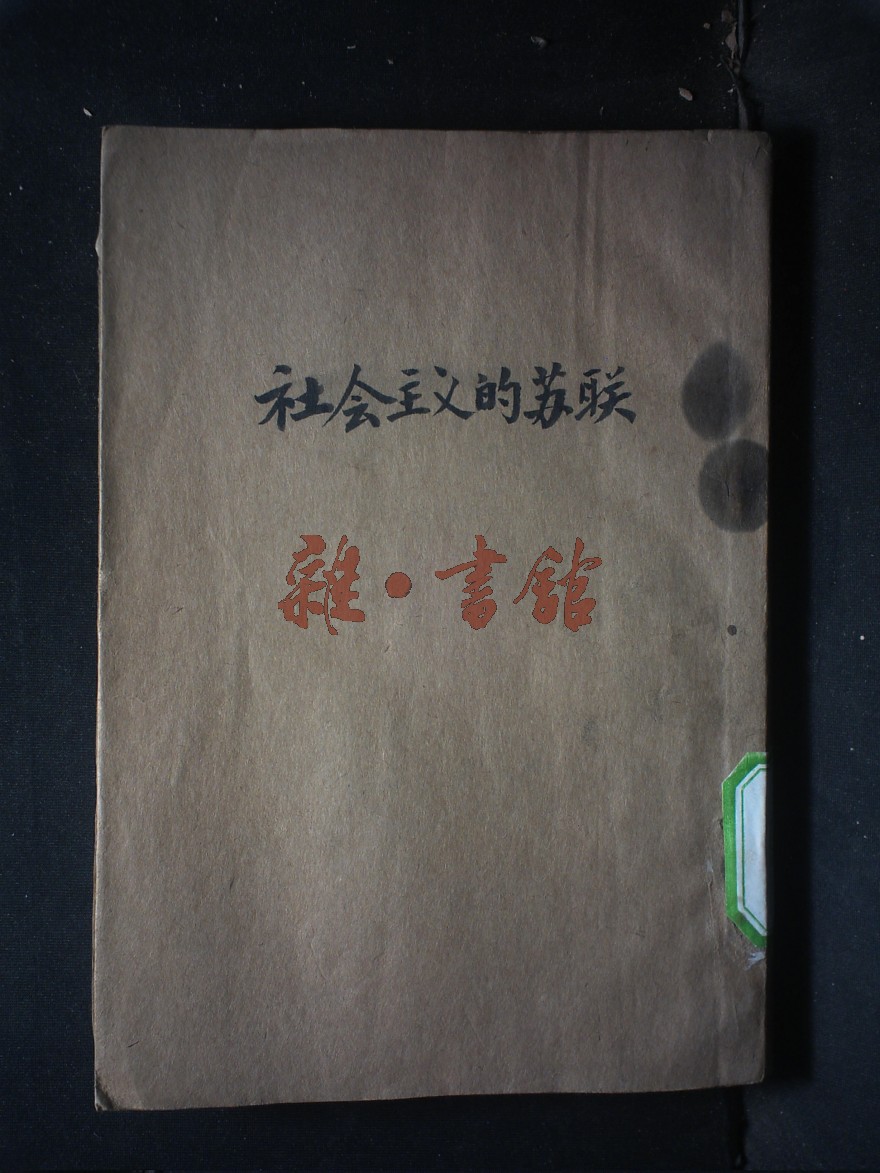 社会主义的苏联
雜·書館